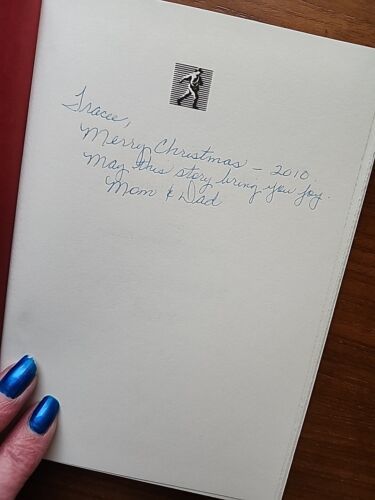 Tracee,
Merry Christmas - 2010.
May this story bring you joy.
Mom & Dad